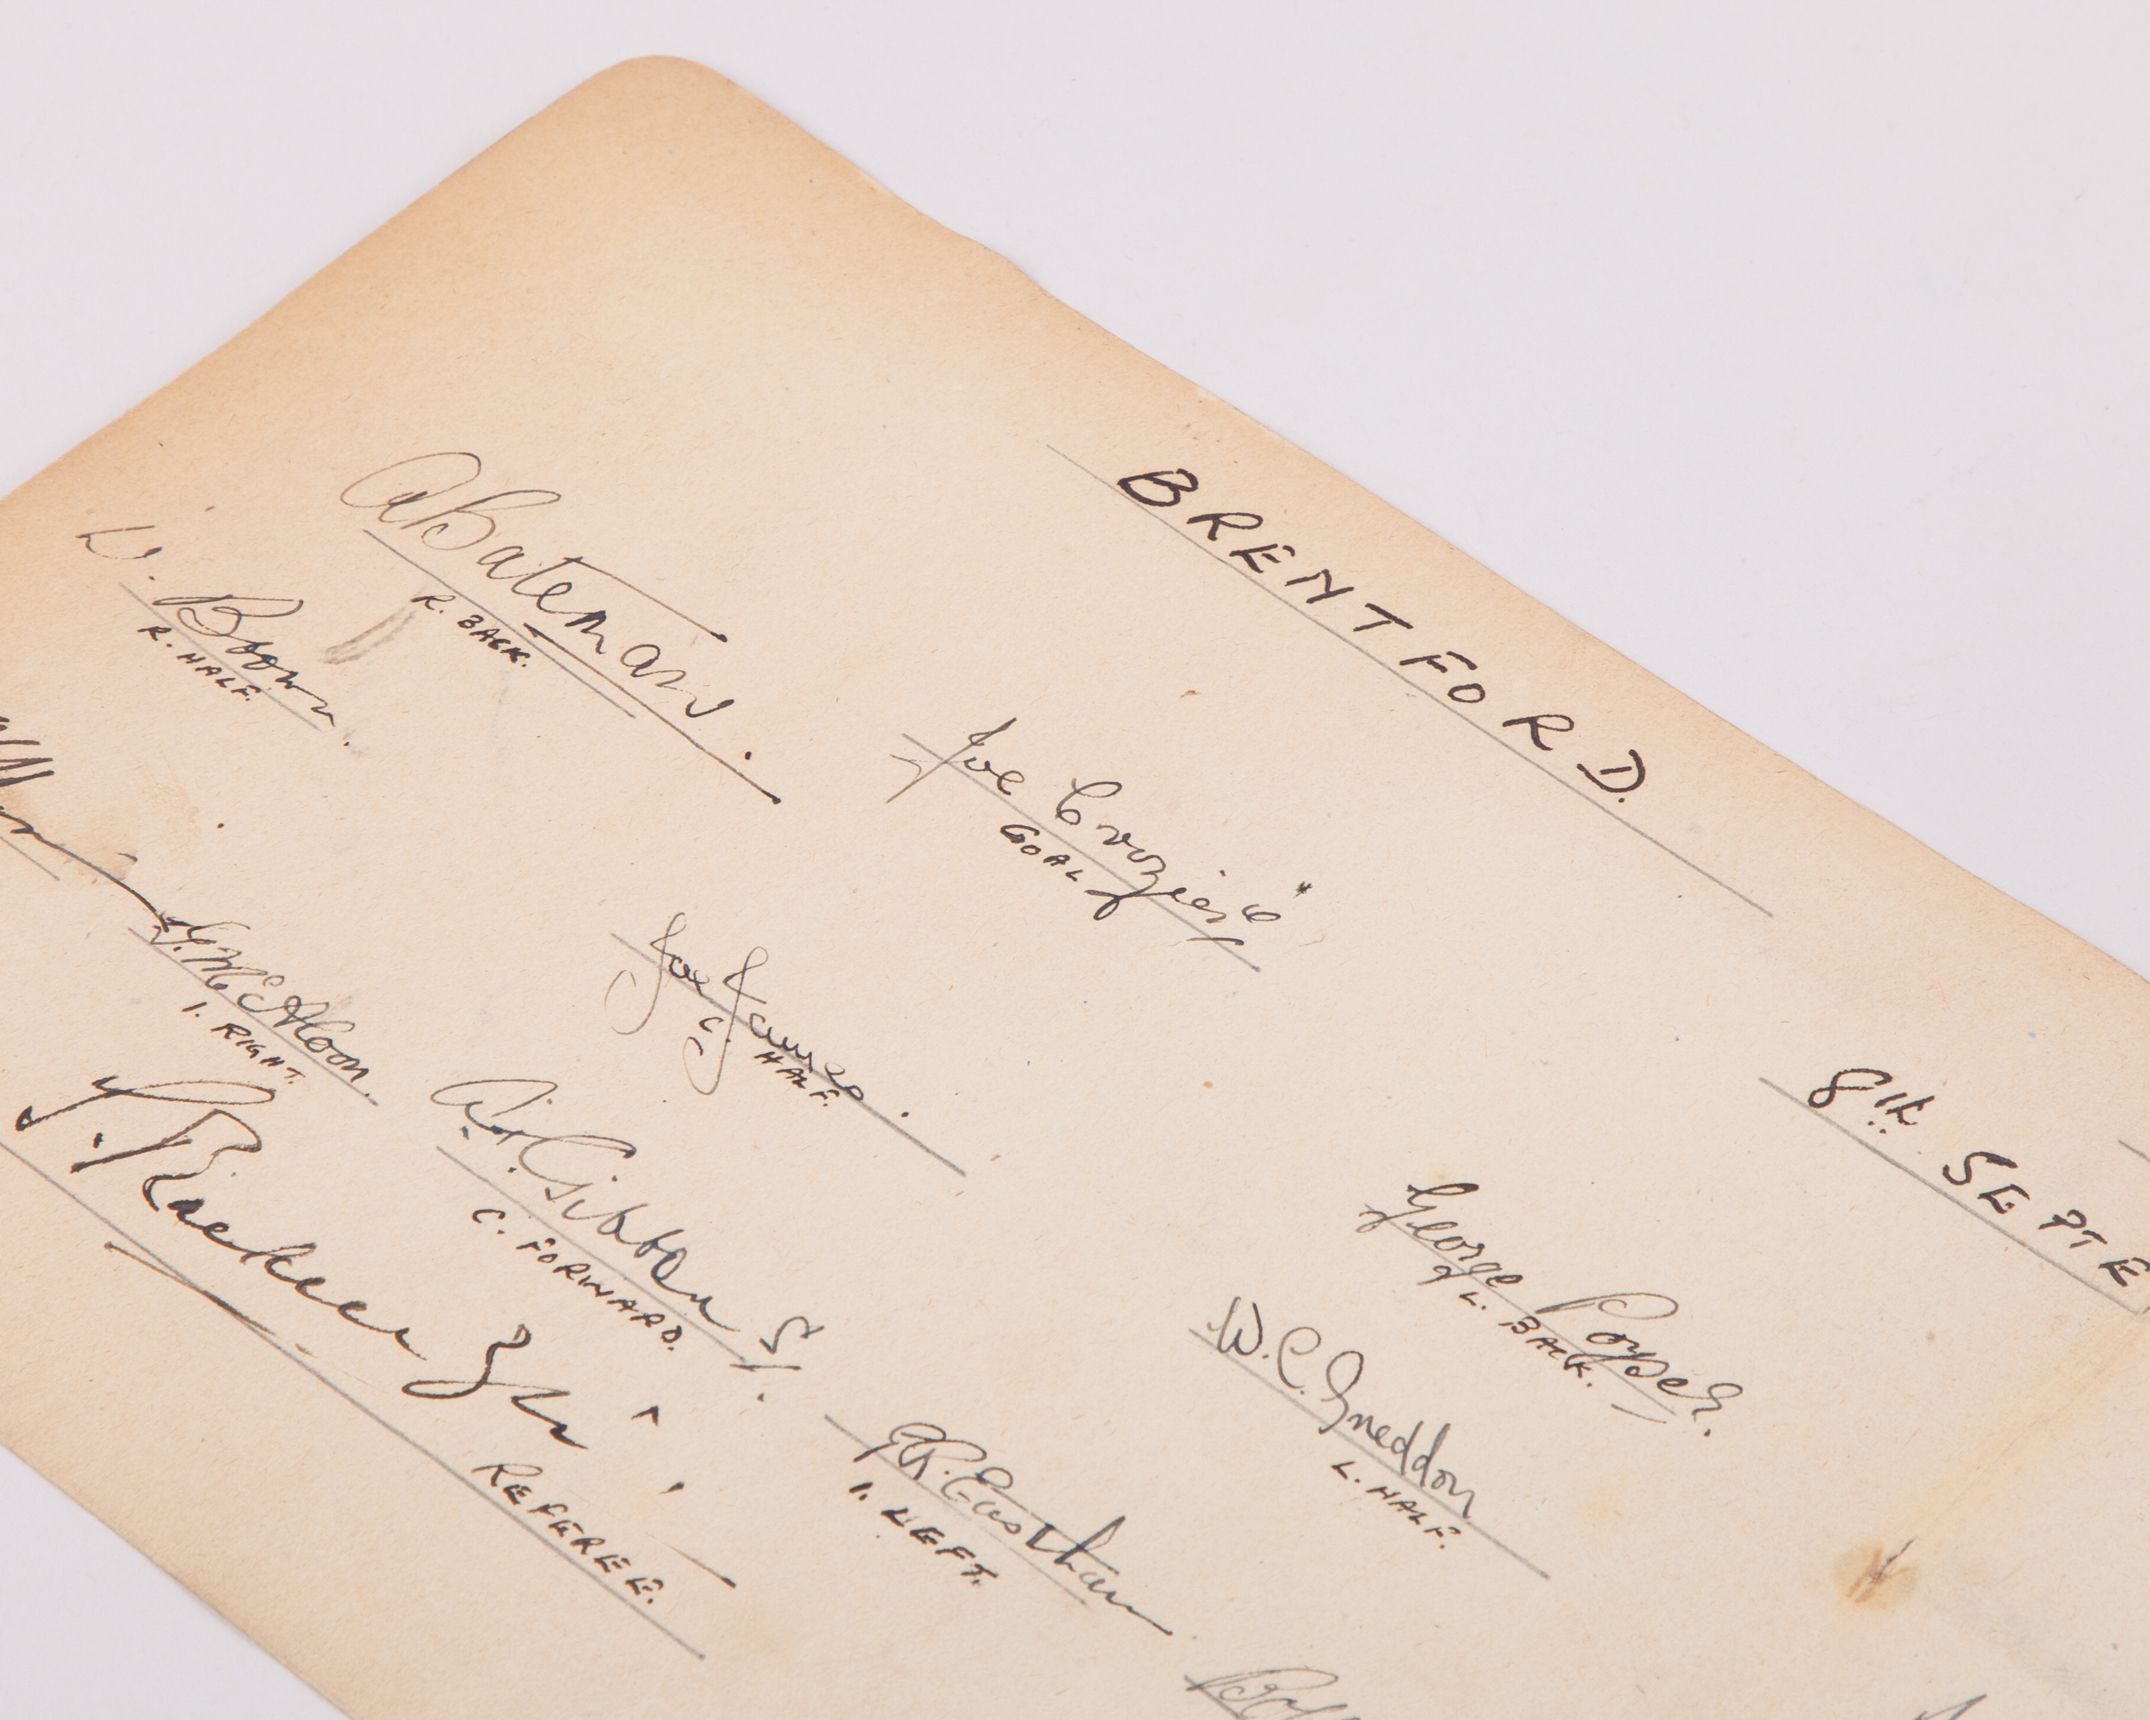 BRENTFORD.
8th SEPTE
Joe Crozier
GOAL
A Bateman.
R. BACK.
George Poyser.
L. BACK.
W. Brown.
R. HALF.
Joe James.
C. HALF.
W.C. Sneddon
L. HALF.
G. McAloon.
I. RIGHT.
A.H. Gibbons
C. FORWARD.
G.R. Eastham
I. LEFT.
REFEREE.